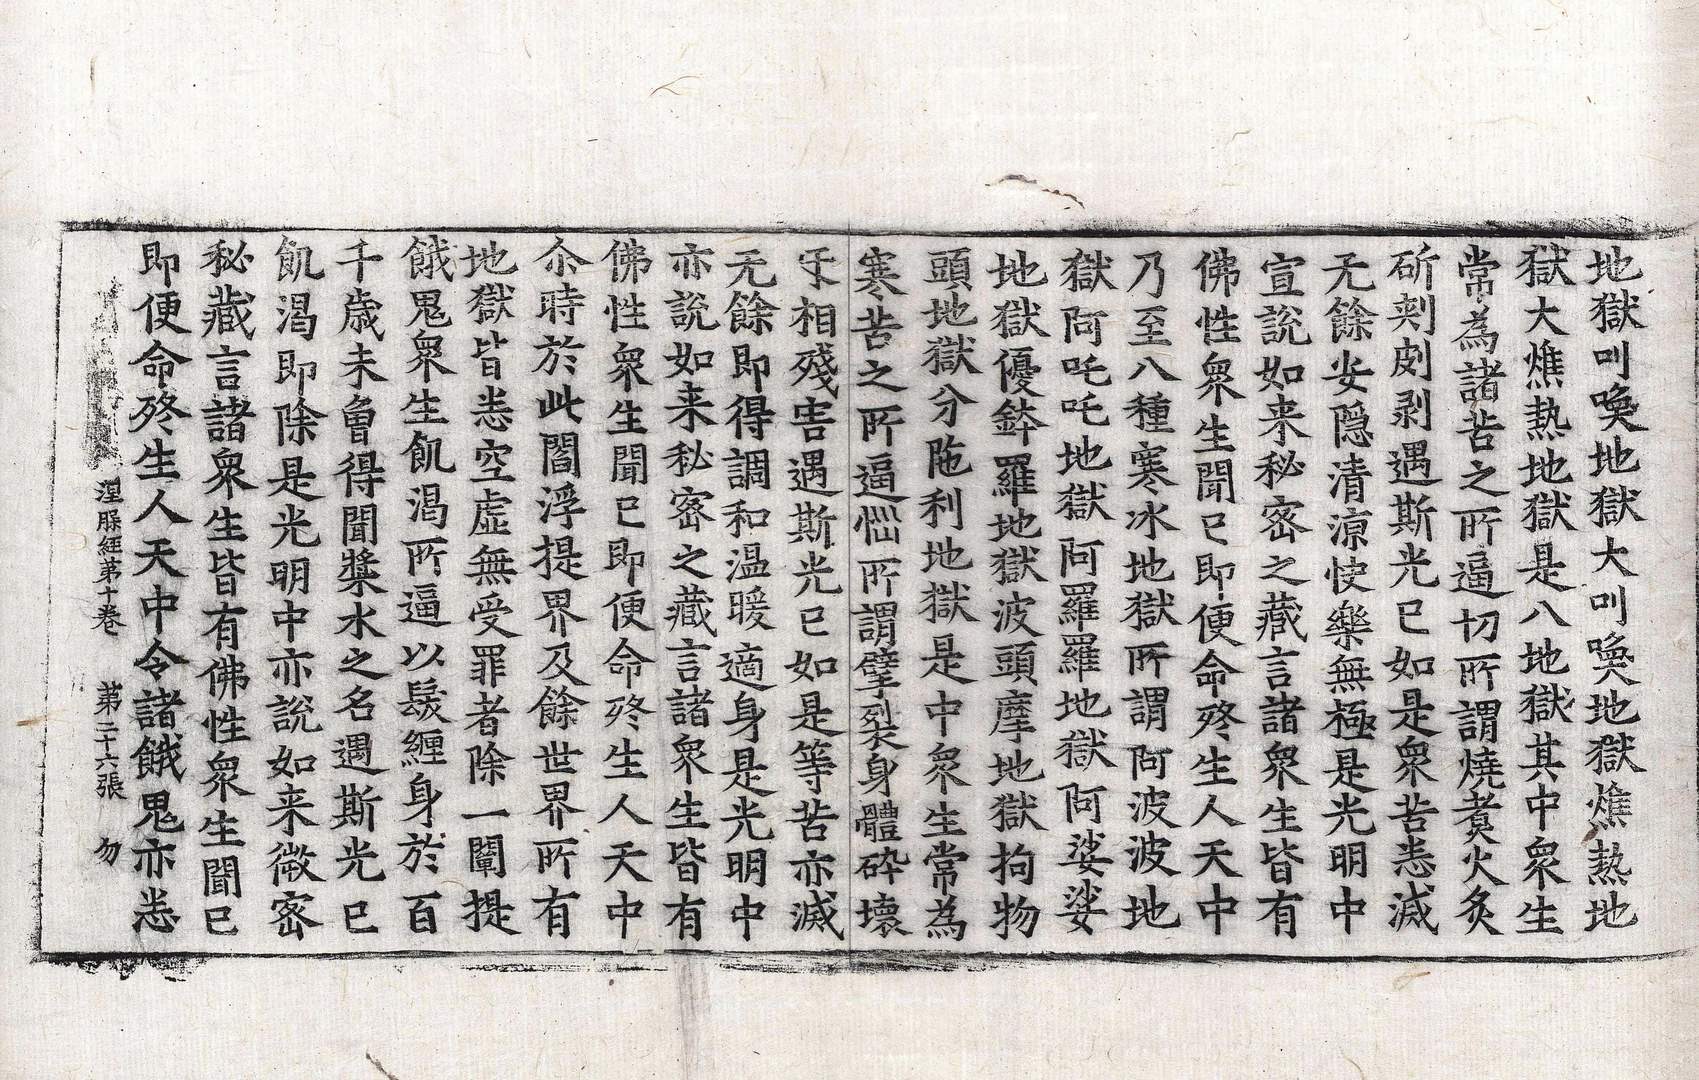 地獄叫喚地獄大叫喚地獄燋熱地
獄大燋熱地獄是八地獄其中衆生
常為諸苦之所逼切所謂燒煮火炙
斫刾㓟剥遇斯光已如是衆苦悉滅
无餘安隠清涼快樂無極是光明中
宣說如来秘密之藏言諸衆生皆有
佛性衆生聞已即便命終生人天中
乃至八種寒冰地獄所謂阿波波地
獄阿吒吒地獄阿羅羅地獄阿娑娑
地獄優鉢羅地獄波頭摩地獄拘物
頭地獄分陁利地獄是中衆生常為
寒苦之所逼惱所謂擘裂身體碎壞
乎相殘害遇斯光已如是等苦亦滅
无餘即得調和温暖適身是光明中
亦說如来秘密之藏言諸衆生皆有
佛性衆生聞已即便命終生人天中
尒時於此閻浮提界及餘世界所有
地獄皆悉空虛無受罪者除一闡提
餓鬼衆生飢渴所逼以髮纏身於百
千歳未曾得聞漿水之名遇斯光已
飢渴即除是光明中亦說如来微密
秘藏言諸衆生皆有佛性衆生聞已
即便命終生人天中令諸餓鬼亦悉
涅脲經苐十卷 苐二十六張 勿